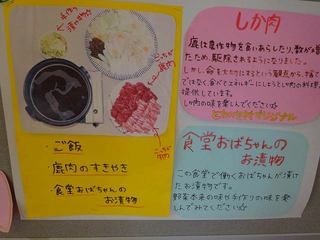 ・ご飯
・鹿肉のすきやき
・食堂おばちゃんの
お漬物
しか肉
鹿は農作物を食いあらしたり、数が増え
たため、駆除されるようになりました。
しかし命を大切にするという観点から、捨て
ではなく食べてエネルギーにしようとしか肉の料理を
提供しています。
しか肉の味を楽しんでください☆
食堂おばちゃんの
お漬物
この食堂で働くおばちゃんが漬け
たお漬物です。
野菜本来の味や手作りの味を楽
しんでみてください☆